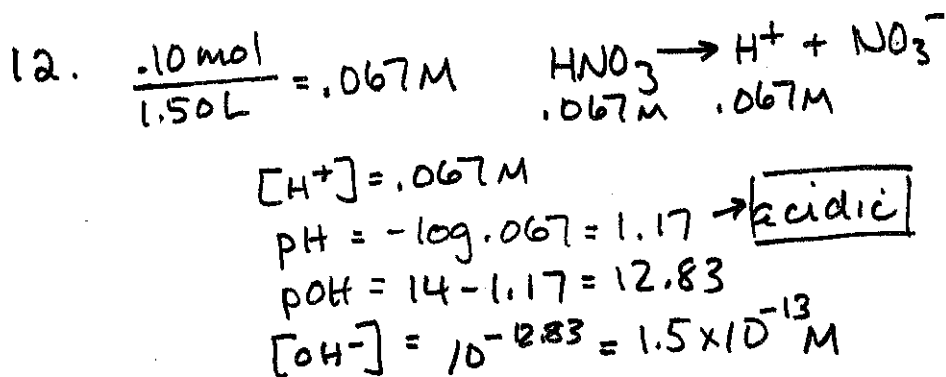 12. .10 mol / 1.50L = .067M HNO₃ → H⁺ + NO₃⁻
.067M .067M
[H⁺] = .067M
pH = -log .067 = 1.17 → acidic
pOH = 14 - 1.17 = 12.83
[OH⁻] = 10⁻¹²·⁸³ = 1.5 x 10⁻¹³ M